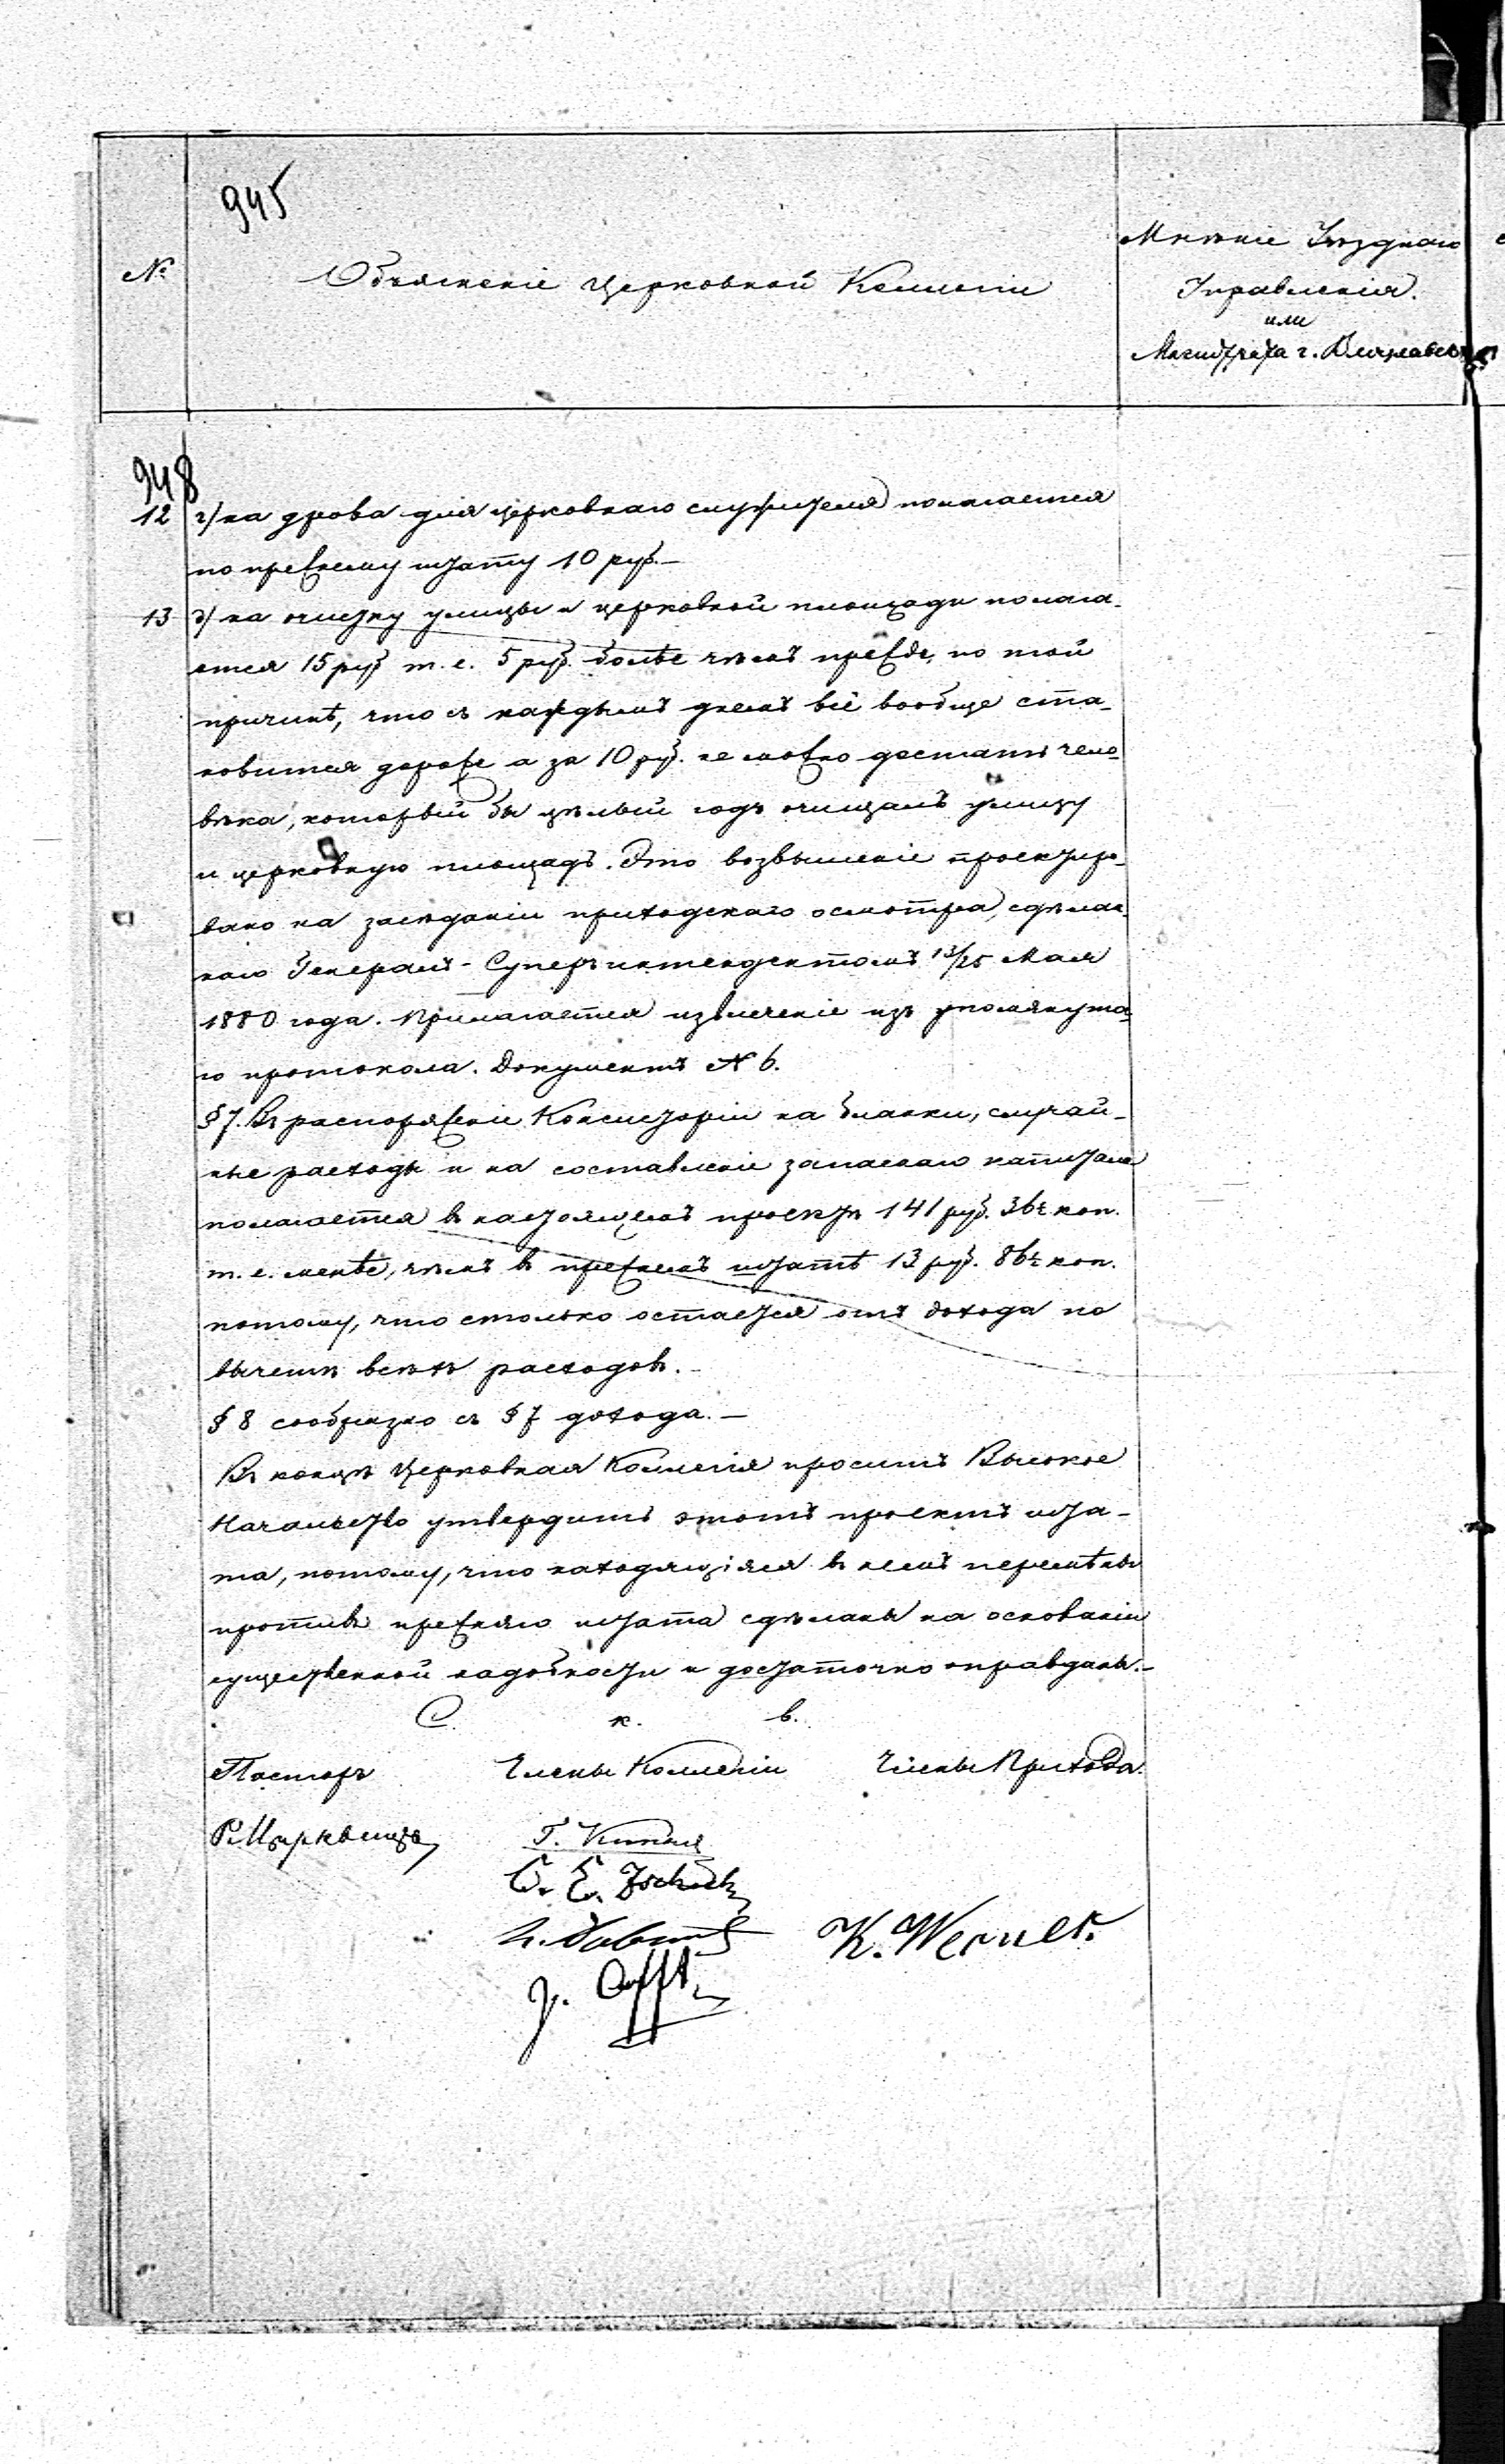 945
№
Объясненіе Церковной Коллегіи
Мнѣніе Уѣзднаго
Управленія.
или
Магистрата г.
948
12 г) на дрова для церковнаго служителя полагается
по прежнему штату 10 руб.—
13 д) на очистку улицы и церковной площади полага-
ется 15 руб т. е. 5 руб. болѣе чѣмъ прежде, по той
причинѣ, что съ каждымъ днемъ всё вообще ста-
новится дороже а за 10 руб. не можно достать чело-
вѣка, который бы цѣлый годъ очищалъ улицу
и церковную площадь. Это возвышеніе проектиро-
вано на засѣданіи приходскаго осмотра, сдѣлан-
наго Генералъ-Суперъинтендентомъ 13/25 Мая
1880 года. Прилагается извлеченіе изъ упомянута-
го протокола. Документъ № 6.
§ 7. Въ распоряженіе Консисторіи на бланки, случай-
ные расходы и на составленіе запаснаго капитала
полагается въ настоящемъ проектѣ 141 руб. 36½ коп.
т. е. менѣе, чѣмъ въ прежнемъ штатѣ 13 руб. 86½ коп.
потому, что столько остается отъ дохода по
вычетѣ всѣхъ расходовъ.—
§ 8 сообразно съ § 7 дохода.—
Въ концѣ Церковная Коллегія проситъ Высокое
Начальство утвердить этотъ проектъ шта-
та, потому, что находящіяся въ немъ перемѣны
противъ прежняго штата сдѣланы на основаніи
существенной надобности и достаточно оправданы.—
С. к. в.
Пасторъ Члены Коллегіи Члены Прихода.
K. Werner.